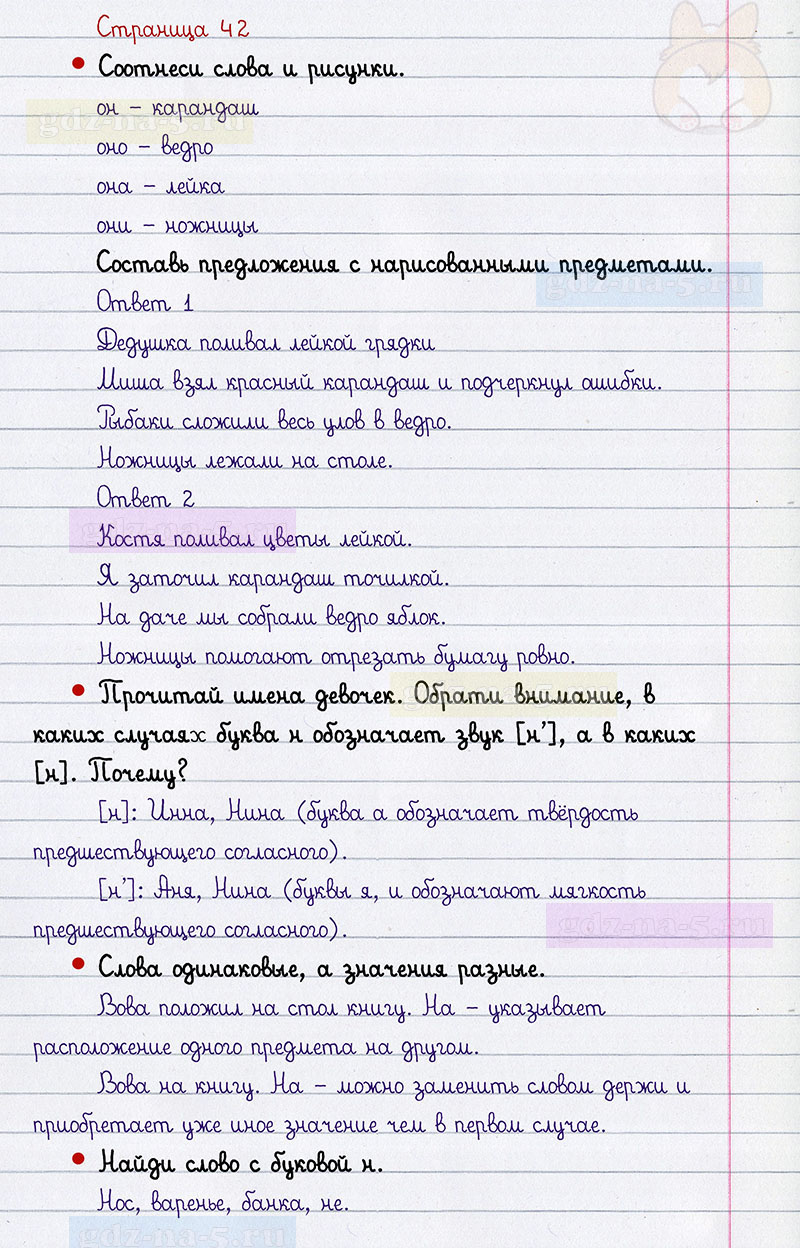 Страница 42
• Соотнеси слова и рисунки.
он – карандаш
gdz-na-5.ru
оно – ведро
она – лейка
они – ножницы
Составь предложения с нарисованными предметами.
gdz-na-5.ru
Ответ 1
Дедушка поливал лейкой грядки
Миша взял красный карандаш и подчеркнул ошибки.
Рыбаки сложили весь улов в ведро.
Ножницы лежали на столе.
Ответ 2
gdz-na-5.ru
Костя поливал цветы лейкой.
Я заточил карандаш точилкой.
На даче мы собрали ведро яблок.
Ножницы помогают отрезать бумагу ровно.
gdz-na-5.ru
• Прочитай имена девочек. Обрати внимание, в
каких случаях буква н обозначает звук [н’], а в каких
[н]. Почему?
[н]: Инна, Нина (буква а обозначает твёрдость
предшествующего согласного).
[н’]: Аня, Нина (буквы я, и обозначают мягкость
предшествующего согласного).
gdz-na-5.ru
• Слова одинаковые, а значения разные.
Вова положил на стол книгу. На – указывает
расположение одного предмета на другом.
Вова на книгу. На – можно заменить словом держи и
приобретает уже иное значение чем в первом случае.
• Найди слово с буковой н.
Нос, варенье, банка, не.
gdz-na-5.ru